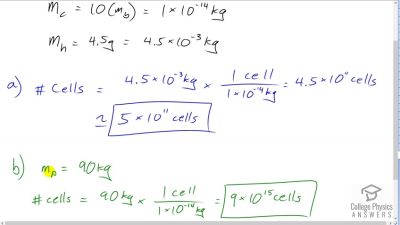 m_c = 10(m_b) = 1 × 10^-14 kg
m_h = 4.5g = 4.5 × 10^-3 kg
a) # Cells = 4.5×10^-3 kg × 1 cell / 1×10^-14 kg = 4.5 × 10^11 cells
≃ 5 × 10^11 cells
b) m_p = 90 kg
# cells = 90 kg × 1 cell / 1×10^-14 kg = 9 × 10^15 cells
College Physics
ANSWERS